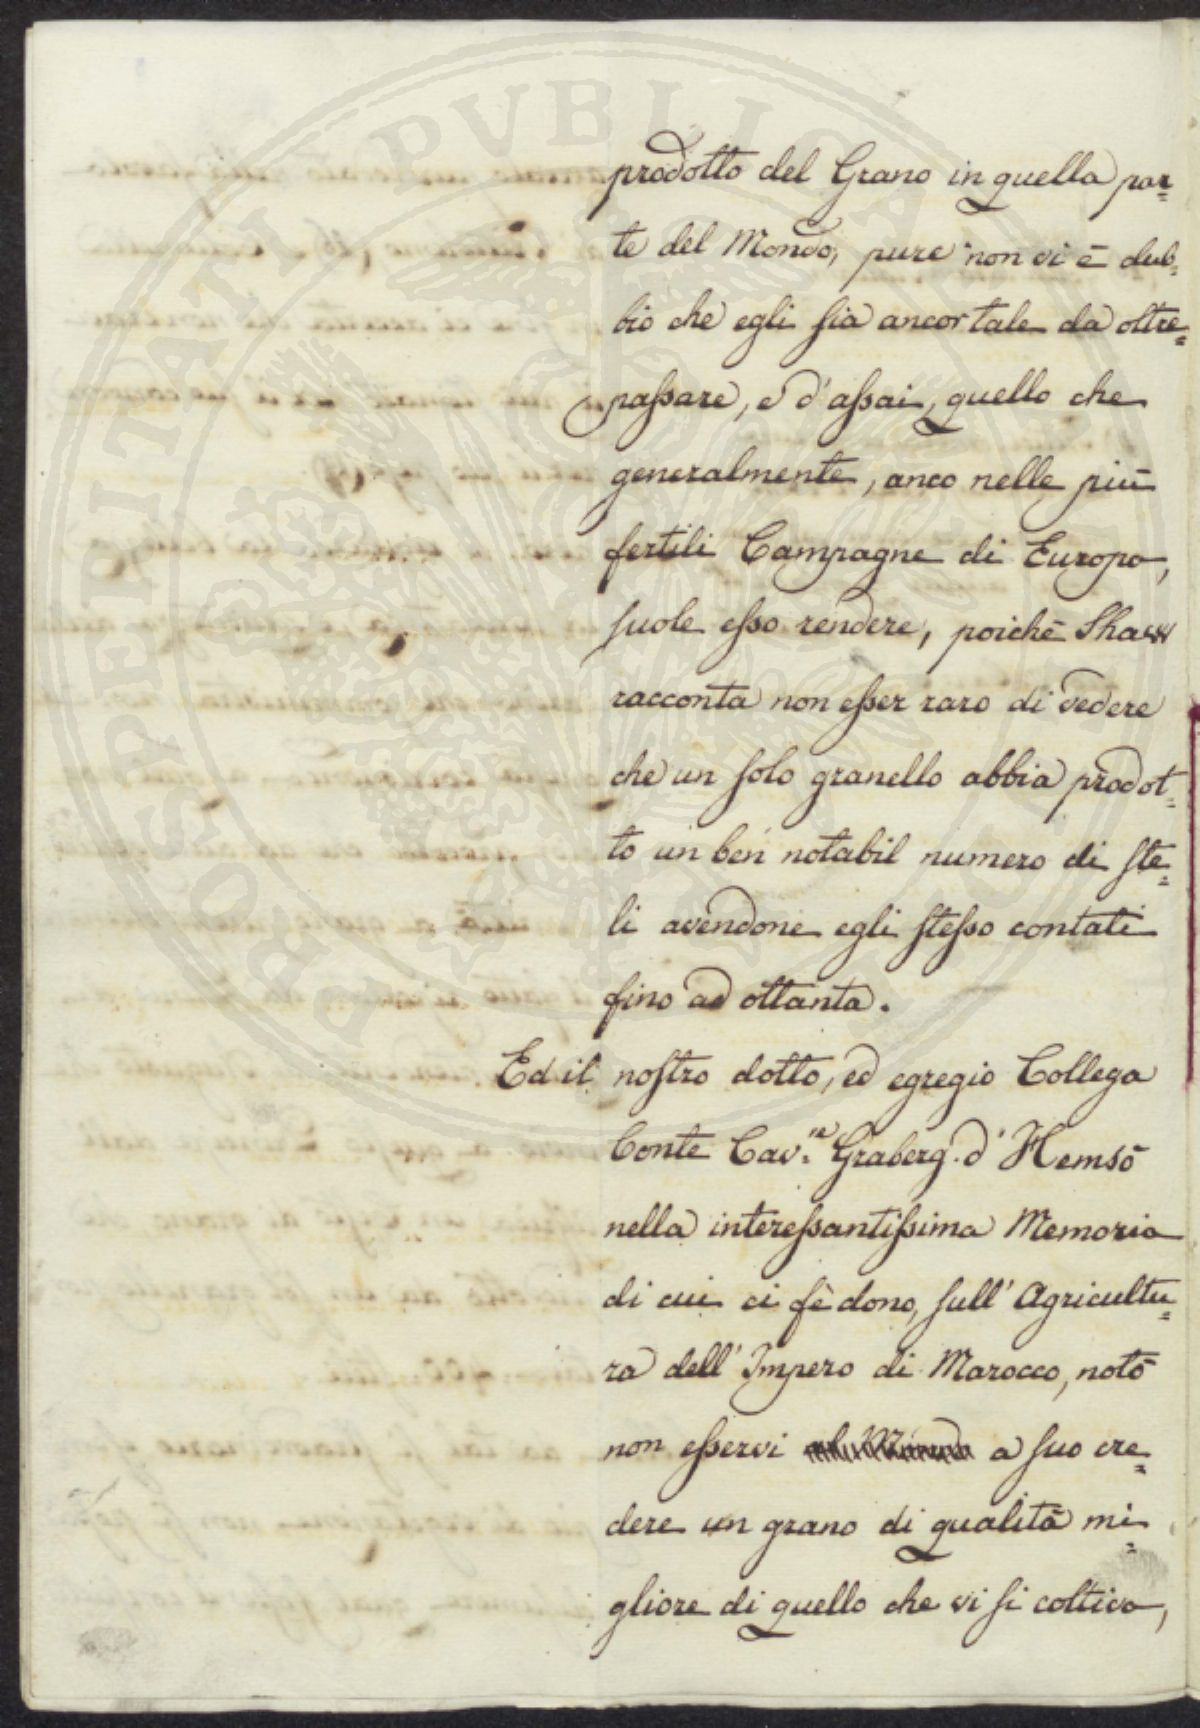 prodotto del Grano in quella par=
te del Mondo, pure non vi è dub=
bio che egli sia ancor tale da oltre=
passare, e d'assai, quello che
generalmente, anco nelle più
fertili Campagne di Europa,
suole esso rendere, poichè Shaw
racconta non esser raro di vedere
che un solo granello abbia prodot=
to un ben notabil numero di ste=
li avendone egli stesso contati
fino ad ottanta.
Ed il nostro dotto, ed egregio Collega
Conte Cav.re Graberg. d' Hemsö
nella interessantissima Memoria
di cui ci fè dono, sull' Agricultu=
ra dell' Impero di Marocco, notò
non esservi al Mondo a suo cre=
dere un grano di qualità mi=
gliore di quello che vi si coltiva,
PROSPERITATI PVBLICAE